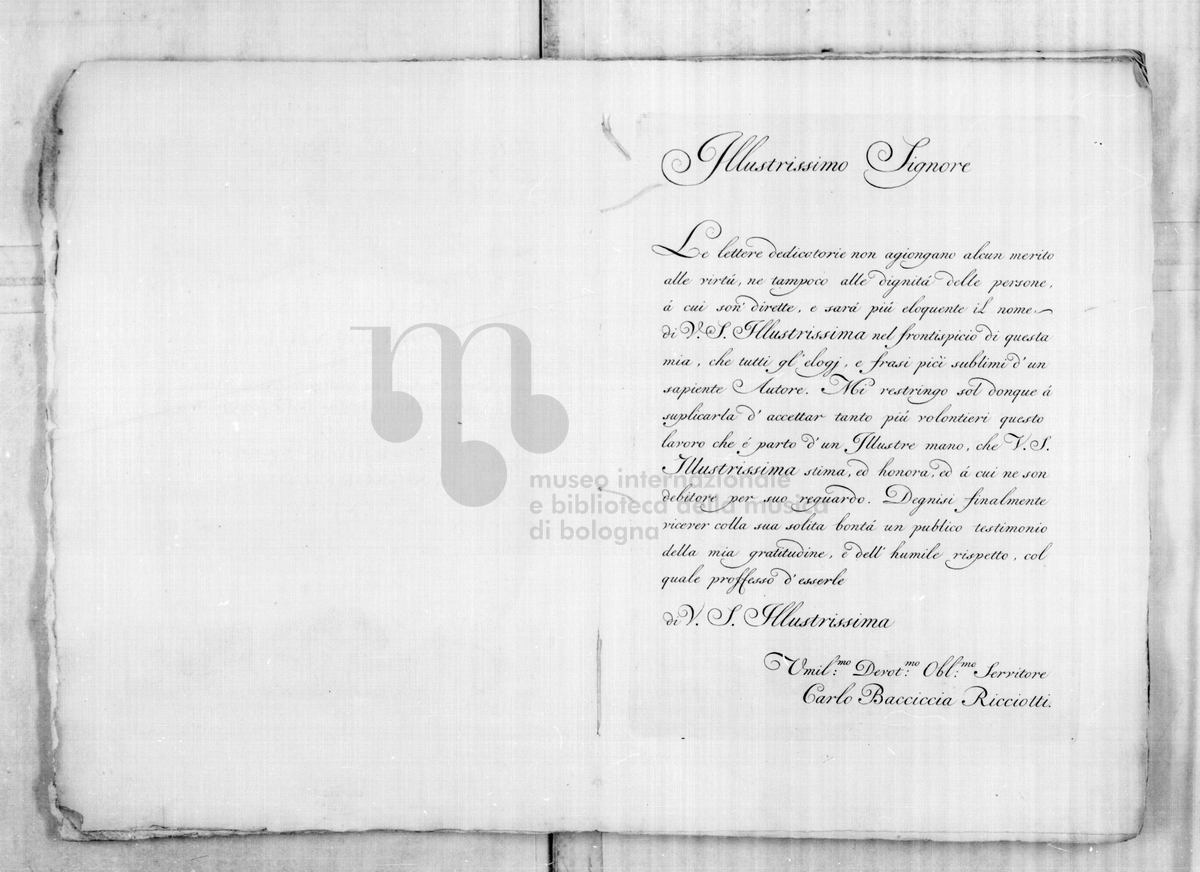 Illustrissimo Signore
Le lettere dedicatorie non agiongano alcun merito
alle virtú, ne tampoco alle dignitá delle persone,
á cui son' dirette, e sará piú eloquente il nome
di V. S. Illustrissima nel frontispicio di questa
mia, che tutti gl' elogj, e frasi piú sublimi d' un
sapiente Autore. Mi restringo sol donque á
suplicarla d' accettar tanto piú volontieri questo
lavoro che é parto d' un Illustre mano, che V. S.
Illustrissima stima, ed honora, ed á cui ne son
debitore per suo reguardo. Degnisi finalmente
ricever colla sua solita bontá un publico testimonio
della mia gratitudine, e dell' humile rispetto, col
quale proffesso d' esserle
di V. S. Illustrissima
Umil:mo Devot:mo Obl:mo Servitore
Carlo Bacciccia Ricciotti.
museo internazionale
e biblioteca della musica
di bologna